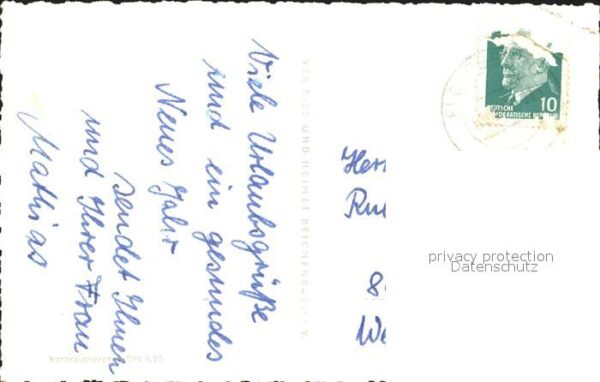 Viele Urlaubsgrüße
und ein gesundes
Neues Jahr
sendet Ihnen
und Ihrer Frau
Mathias
VEB BILD UND HEIMAT REICHENBACH I. V.
Verbraucherpreis DM 0,20
10
DEUTSCHE
DEMOKRATISCHE REPUBLIK
privacy protection
Datenschutz